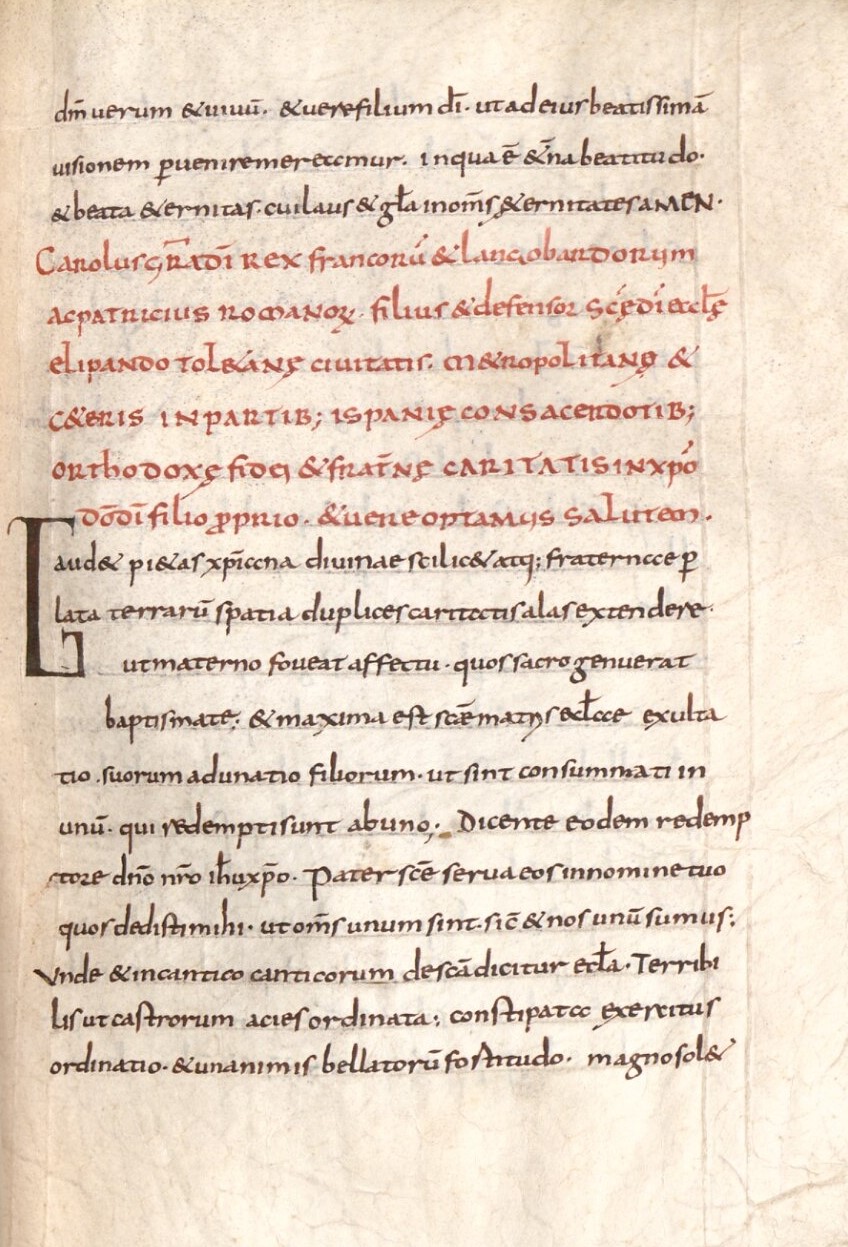 dm̄ uerum & uiuū. & uere filium dī. ut ad eius beatissimā
uisionem ꝑuenire mereamur. in qua ē &̄na beatitudo.
& beata &ernitas. cui laus & gła in om̄s &ernitates AMEN.
Carolus gr̄a dī REX francorū & langobardorum
ac patricius romanoꝝ. filius & defensor sc̄ę dī ecclę̄
elipando tol&anę ciuitatis. m&ropolitano &
c&eris in partib; ispanię consacerdotib;
orthodoxę fidei & frat̄nę caritatis in xp̄o
dō dī filio ꝓprio. & uere optamus salutem.
Gaud& pi&as xp̄iana diuinae scilic& atq; fraternae ꝑ
lata terrarū spatia duplices caritatis alas extendere.
ut materno foueat affectu. quos sacro genuerat
baptismate; & maxima est scāe matris eccłae exulta
tio. suorum adunatio filiorum. ut sint consummati in
unū. qui redempti sunt ab uno; Dicente eodem redemp
tore dn̄o nr̄o ihu xp̄o. Pater scē serua eos in nomine tuo
quos dedisti mihi. ut om̄s unum sint. sic̄ & nos unū sumus;
Vnde & in cantico canticorum de scā dicitur eccła. Terribi
lis ut castrorum acies ordinata; constipata exercitus
ordinatio. & unanimis bellatorū fortitudo. magno sol&